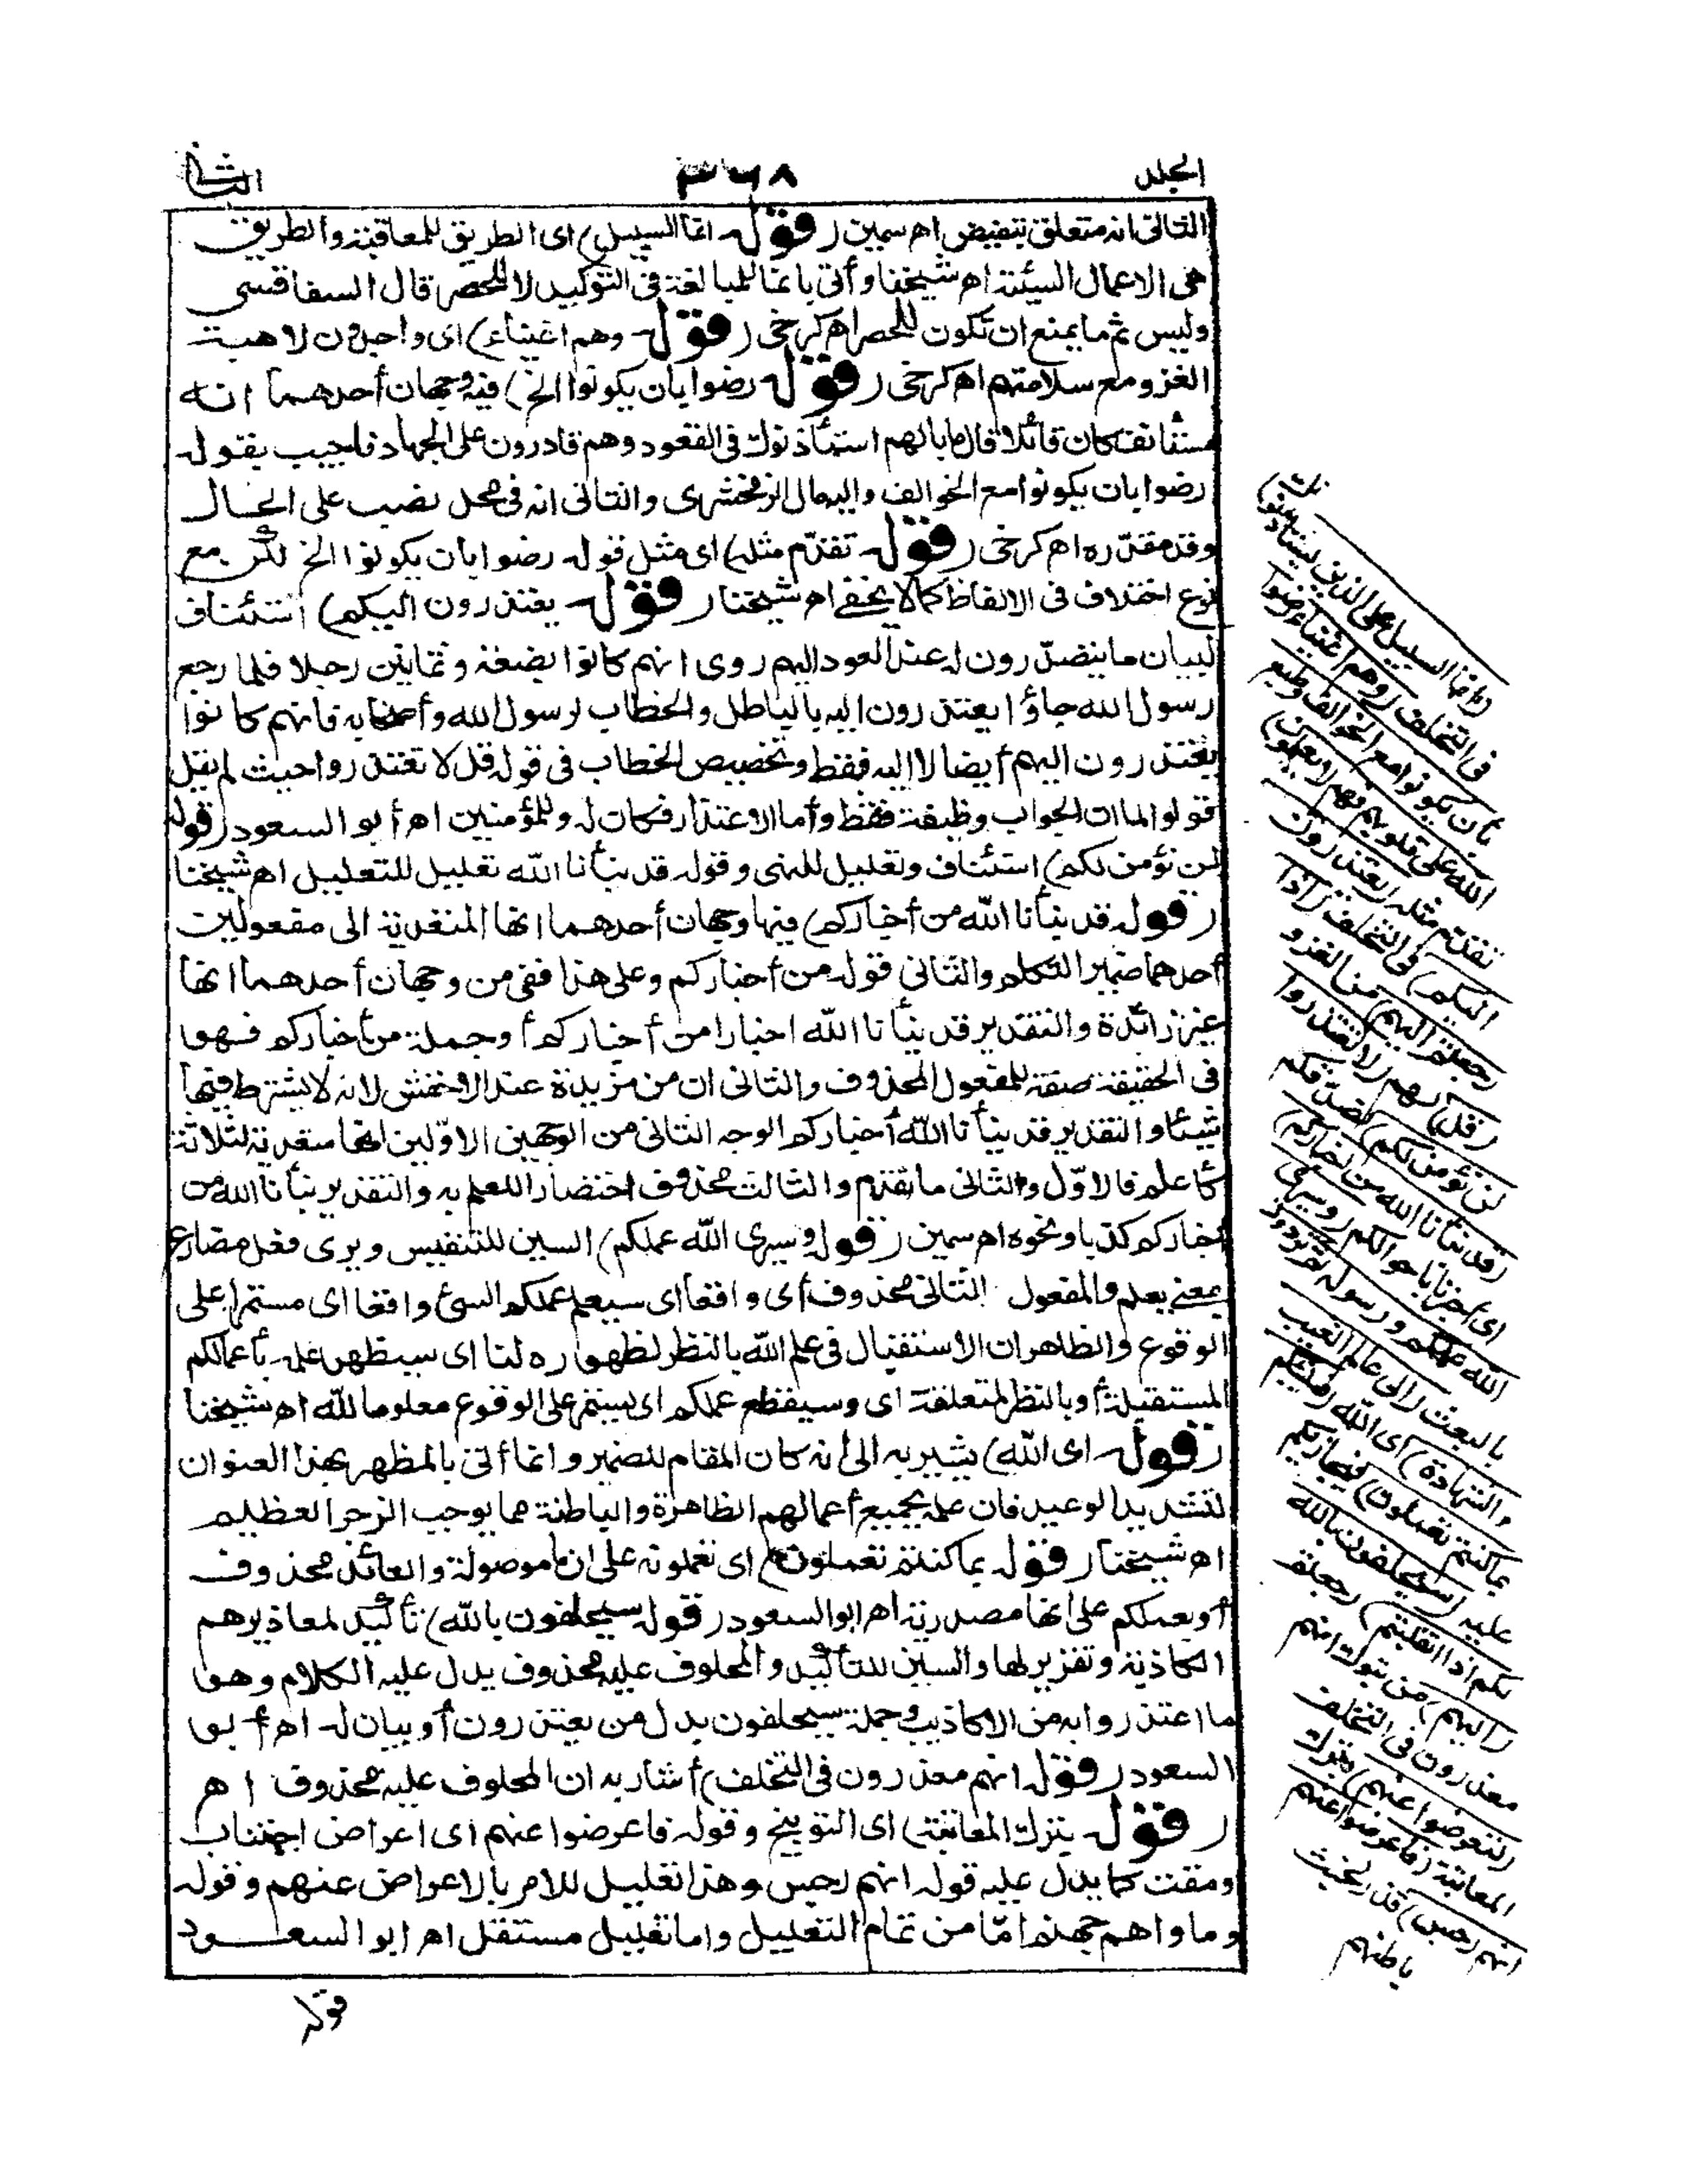 الجلد
٣٦٨
الثانى
الثالث انه متعلق بتفيض اهـ سمين (قوله انما السبيل) اى الطريق للمعاقبة والطريق
هى الاعمال السيئة اهـ شيخنا وأتى بانما للمبالغة فى التوكيد لا للحصر قال السفاقسى
وليس ثم ما يمنع ان تكون للحصر اهـ كرخى (قوله وهم اغنياء) اى واجدون لاهبة
الغزو مع سلامتهم اهـ كرخى (قوله رضوا بان يكونوا الخ) فيه وجهان أحدهما انه
مستأنف كان قائلا قال ما بالهم استأذنوك فى القعود وهم قادرون على الجهاد فاجيب بقوله
رضوا بان يكونوا مع الخوالف واليه مال الزمخشرى والثانى انه فى محل نصب على الحال
وقد مقدرة اهـ كرخى (قوله تقدم مثله) اى مثل قوله رضوا بان يكونوا الخ لكن مع
نوع اختلاف فى الالفاظ كما لا يخفى اهـ شيخنا (قوله يعتذرون اليكم) استئناف
لبيان ما يتصدرون له عند العود اليهم روى انهم كانوا بضعة وثمانين رجلا فلما رجع
رسول الله جاؤا يعتذرون اليه بالباطل والخطاب لرسول الله وأصحابه فانهم كانوا
يعتذرون اليهم أيضا لا اليه فقط وتخصيص الخطاب فى قوله قل لا تعتذروا حيث لم يقل
قولوا لما ان الجواب وظيفته فقط وأما الاعتذار فكان له وللمؤمنين اهـ أبو السعود (قوله
لن نؤمن لكم) استئناف وتعليل للنهى وقوله قد نبأنا الله تعليل للتعليل اهـ شيخنا
(قوله قد نبأنا الله من أخباركم) فيها وجهان أحدهما انها المتعدية الى مفعولين
أحدهما ضمير التكلم والثانى قوله من أخباركم وعلى هذا ففى من وجهان أحدهما انها
غير زائدة والتقدير قد نبأنا الله اخبارا من أخباركم أو جملة من أخباركم فهو
فى الحقيقة صفة للمفعول المحذوف والثانى ان من مزيدة عند الاخفش لانه لا يشترط فيها
شيئا والتقدير قد نبأنا الله أخباركم الوجه الثانى من الوجهين الاولين انها متعدية لثلاثة
كأعلم فالاول والثانى ما تقدم والثالث محذوف اختصارا للعلم به والتقدير نبأنا الله من
أخباركم كذبا ونحوه اهـ سمين (قوله وسيرى الله عملكم) السين للتنفيس ويرى فعل مضارع
بمعنى يعلم والمفعول الثانى محذوف أى واقعا أى سيعلم عملكم السئ واقعا اى مستمرا على
الوقوع والظاهر ان الاستقبال فى علم الله بالنظر لظهوره لنا اى سيظهر علمه بأعمالكم
المستقبلة أو بالنظر لمتعلقه اى وسيقطع عملكم اى يستمر على الوقوع معلوما لله اهـ شيخنا
(قوله اى الله) يشير به الى انه كان المقام للضمير وانما أتى بالمظهر بهذا العنوان
لتشديد الوعيد فان علمه بجميع أعمالهم الظاهرة والباطنة مما يوجب الزجر العظيم
اهـ شيخنا (قوله بما كنتم تعملون) اى تعملونه على ان ما موصولة والعائد محذوف
أو بعملكم على انها مصدرية اهـ ابو السعود (قوله سيحلفون بالله) تأكيد لمعاذيرهم
الكاذبة وتقرير لها والسين للتأكيد والمحلوف عليه محذوف يدل عليه الكلام وهو
ما اعتذروا به من الاكاذيب وجملة سيحلفون بدل من يعتذرون أو بيان له اهـ أبو
السعود (قوله انهم معذرون فى التخلف) أشار به ان المحلوف عليه محذوف اهـ
(قوله بترك المعاتبة) اى التوبيخ وقوله فاعرضوا عنهم اى اعراض اجتناب
ومقت كما يدل عليه قوله انهم رجس وهذا تعليل للامر بالاعراض عنهم وقوله
وماواهم جهنم اما من تمام التعليل واما تعليل مستقل اهـ ابو السعود
قوله
(انما السبيل على الذين يستأذنونك)
فى التخلف (وهم اغنياء رضوا
بأن يكونوا مع الخوالف وطبع
الله على قلوبهم فهم لا يعلمون)
تقدم مثله (يعتذرون
اليكم) فى التخلف (اذا
رجعتم اليهم) من الغزو
(قل) لهم (لا تعتذروا
لن نؤمن لكم) نصدقكم
(قد نبأنا الله من أخباركم)
اى أخبرنا باحوالكم (وسيرى
الله عملكم ورسوله ثم تردون)
بالبعث (الى عالم الغيب
والشهادة) اى الله (فينبئكم
بما كنتم تعملون) فيجازيكم
عليه (سيحلفون بالله
لكم اذا انقلبتم) رجعتم
(اليهم) من تبوك انهم
معذرون فى التخلف
(لتعرضوا عنهم) بترك
المعاتبة (فاعرضوا عنهم
انهم رجس) قذر لخبث
باطنهم